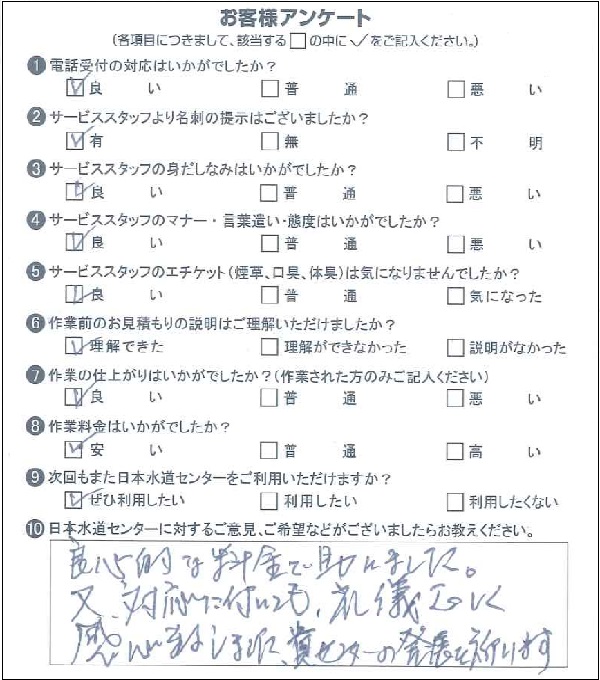 お客様アンケート
(各項目につきまして、該当する□の中に✓をご記入ください。)
❶電話受付の対応はいかがでしたか?
☑良い □普通 □悪い
❷サービススタッフより名刺の提示はございましたか?
☑有 □無 □不明
❸サービススタッフの身だしなみはいかがでしたか?
☑良い □普通 □悪い
❹サービススタッフのマナー・言葉遣い・態度はいかがでしたか?
☑良い □普通 □悪い
❺サービススタッフのエチケット(煙草、口臭、体臭)は気になりませんでしたか?
☑良い □普通 □気になった
❻作業前のお見積もりの説明はご理解いただけましたか?
☑理解できた □理解ができなかった □説明がなかった
❼作業の仕上がりはいかがでしたか?(作業された方のみご記入ください)
☑良い □普通 □悪い
❽作業料金はいかがでしたか?
☑安い □普通 □高い
❾次回もまた日本水道センターをご利用いただけますか?
☑ぜひ利用したい □利用したい □利用したくない
❿日本水道センターに対するご意見、ご希望などがございましたらお教えください。
良心的な料金で助けました。
又、対応に付いても、礼儀正しく
感心致しました、貴センターの発展を祈ります